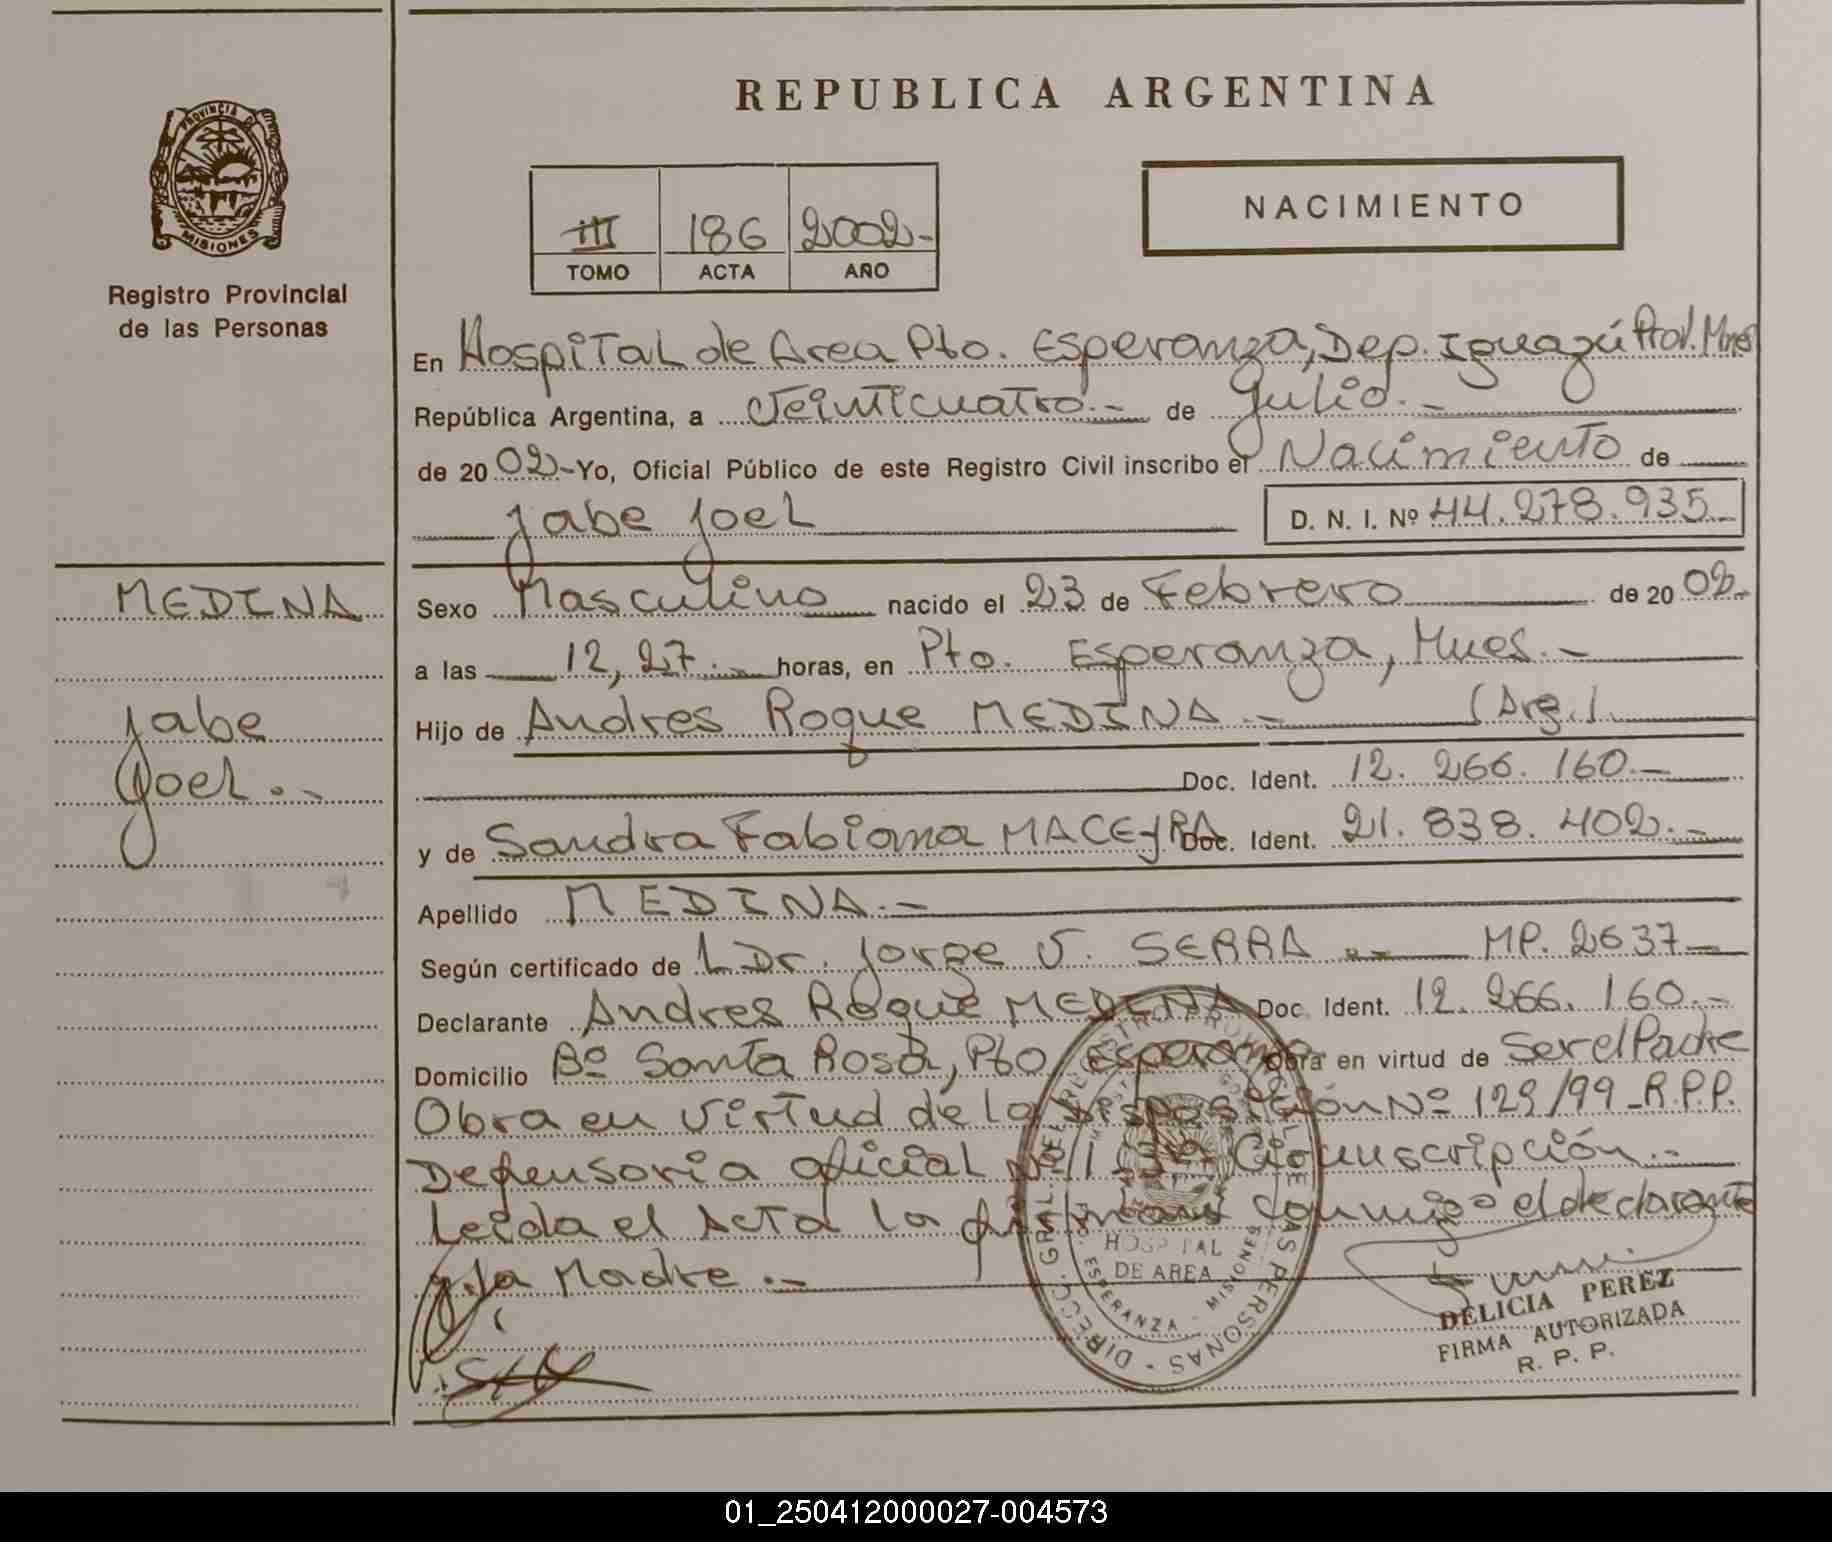 REPUBLICA ARGENTINA
PROVINCIA DE
MISIONES
Registro Provincial
de las Personas
III 186 2002-
TOMO ACTA AÑO
NACIMIENTO
En Hospital de Area Pto. Esperanza, Dep. Iguazú Prov. Mnes
República Argentina, a Veinticuatro.- de Julio.-
de 20 02- Yo, Oficial Público de este Registro Civil inscribo el Nacimiento de
Jabe Joel D. N. I. Nº 44.278.935-
MEDINA
Jabe
Joel.-
Sexo Masculino nacido el 23 de Febrero de 20 02-
a las 12,27.- horas, en Pto. Esperanza, Mnes.-
Hijo de Andres Roque MEDINA.- (Arg.).
Doc. Ident. 12.266.160.-
y de Sandra Fabiana MACEYRA Doc. Ident. 21.838.402.-
Apellido MEDINA.-
Según certificado de L Dr. Jorge V. SERRA.- MP. 2637-
Declarante Andres Roque MEDINA Doc. Ident. 12.266.160.-
Domicilio Bº Santa Rosa, Pto. Esperanza Obra en virtud de Ser el Padre
Obra en Virtud de la Disposición Nº 129/99-R.P.P.
Defensoria oficial Nº 1 3ª Circunscripción.-
Leida el Acta la firman conmigo el declarante
y la Madre.-
DIRECC. GRAL. DEL REGISTRO PROVINCIAL DE LAS PERSONAS
HOSPITAL
DE AREA
ESPERANZA - MISIONES
DELICIA PEREZ
FIRMA AUTORIZADA
R. P. P.
01_250412000027-004573